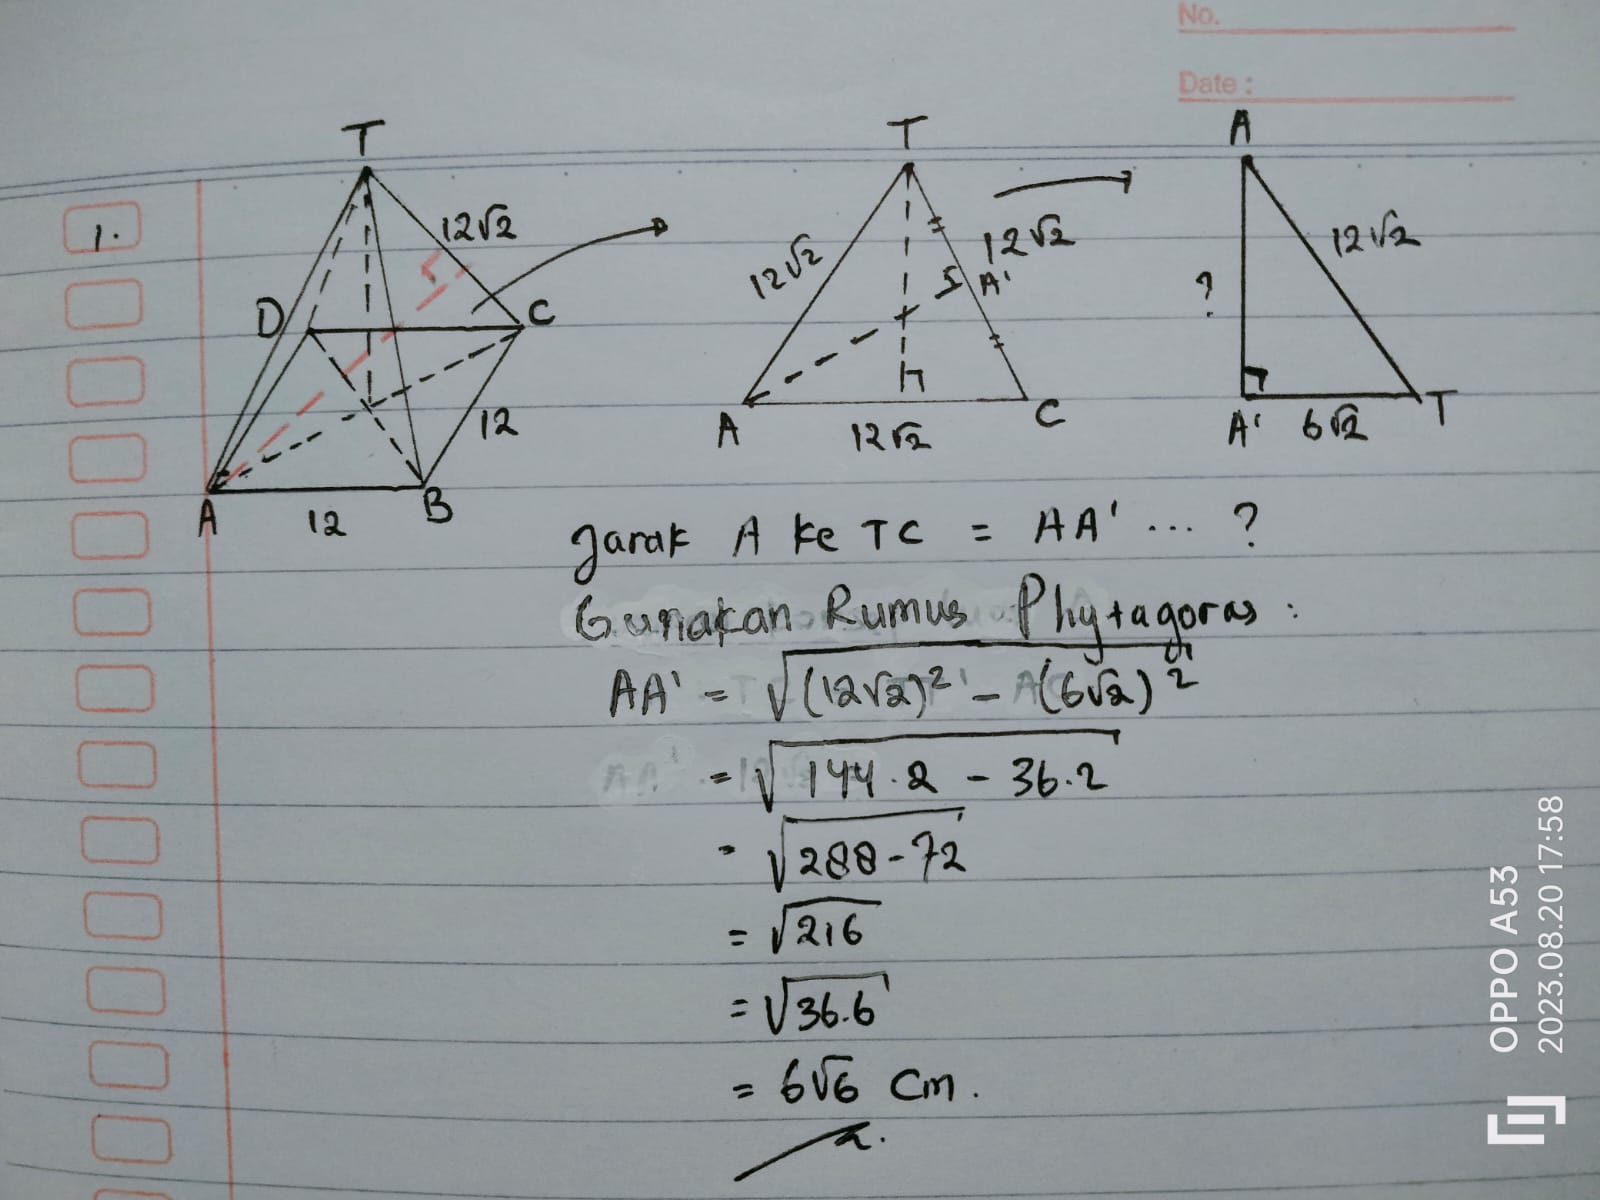 No.
Date :
1.
T
12√2
D
C
12
A
12
B
T
12√2
12√2
A'
A
12√2
C
A
12√2
?
A'
6√2
T
Jarak A ke TC = AA' ... ?
Gunakan Rumus Phytagoras :
AA' = √(12√2)² - (6√2)²
= √144.2 - 36.2
= √288-72
= √216
= √36.6
= 6√6 Cm.
OPPO A53
2023.08.20 17:58